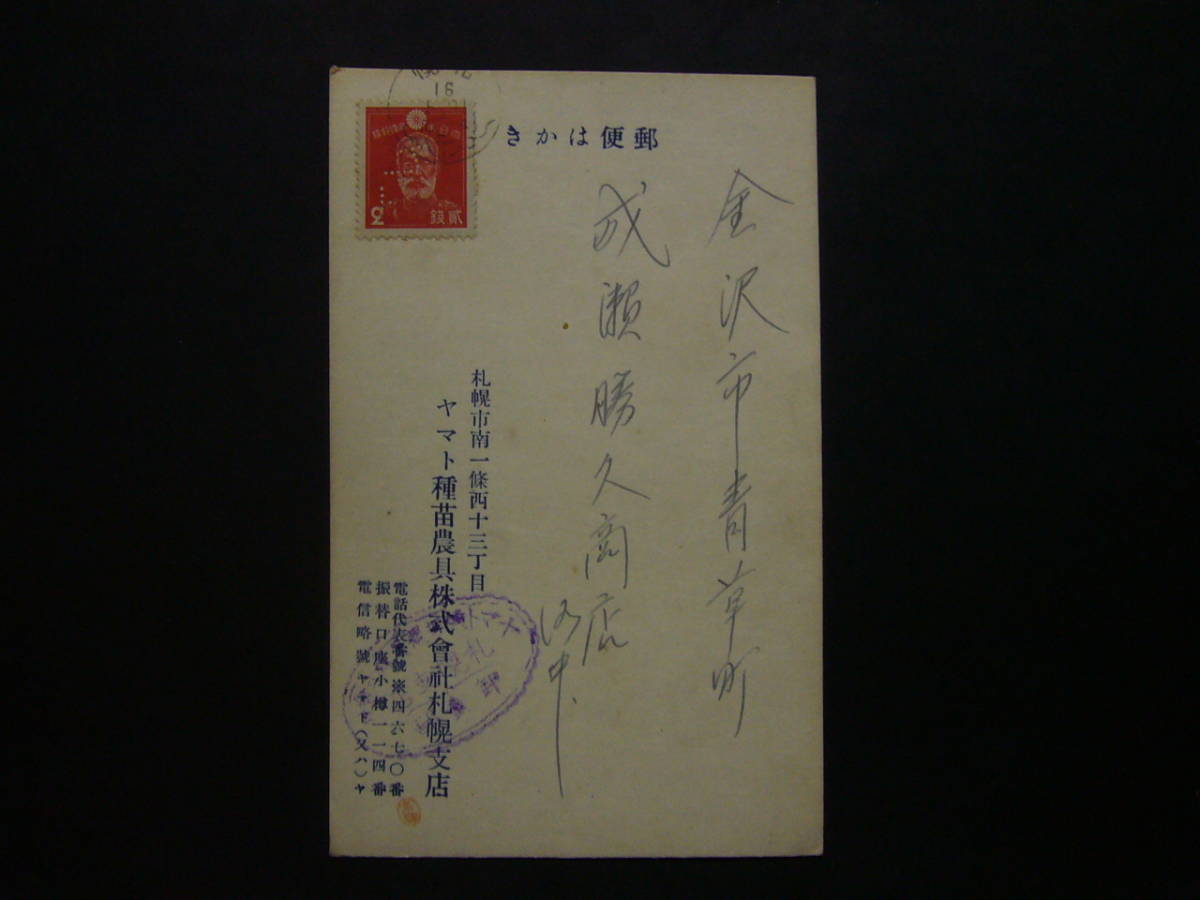 郵便はかき
金沢市青草町
成瀬勝久商店
御中
札幌市南一條西十三丁目
ヤマト種苗農具株式會社札幌支店
電話代表番號 四六七〇番
振替口座小樽一一四番
電信略號
(又ハ)ヤ
16
2
貳銭